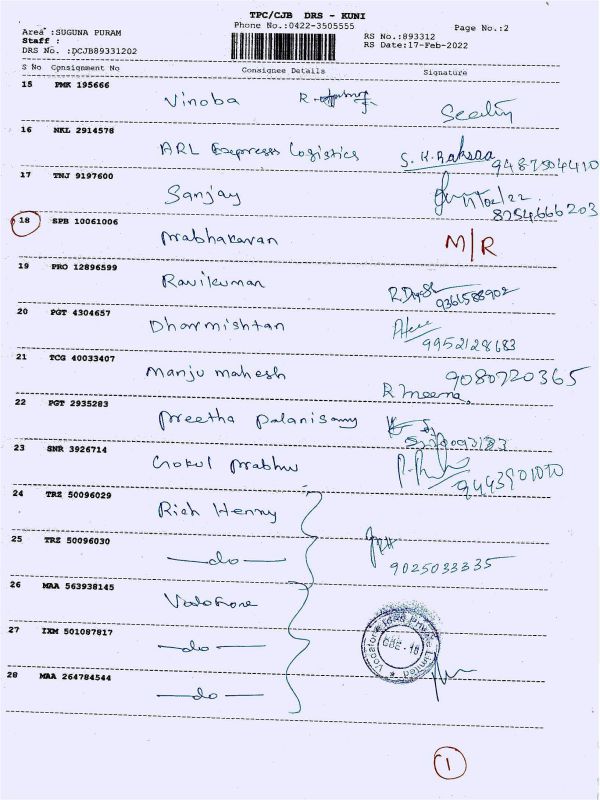 TPC/CJB DRS - KUNI
Phone No.:0422-3505555
Page No.:2
Area :SUGUNA PURAM
Staff :
RS No.:893312
DRS No. :DCJB89331202
RS Date:17-Feb-2022
S No Consignment No Consignee Details Signature
15 PMK 195666 Vinoba R
16 NKL 2914578 ARL Express Logistics S. K. Raksaa 9487504410
17 TNJ 9197600 Sanjay 17/02/22
8254666203
18 SPB 10061006 Prabhakaran M/R
19 PRO 12896599 Ravikumar 9361588902
20 PGT 4304657 Dharmishtan 9952128683
21 TCG 40033407 Manju mahesh 9080720365
R. Meena.
22 PGT 2935283 Preetha Palanisamy
23 SNR 3926714 Gokul Prabhu
24 TRZ 50096029 Rich Henny
25 TRZ 50096030 —do— 9025033335
26 MAA 563938145 Vodafone
27 IXM 501087817 —do— Vodafone Idea Private Limited
28 MAA 264784544 —do—
1